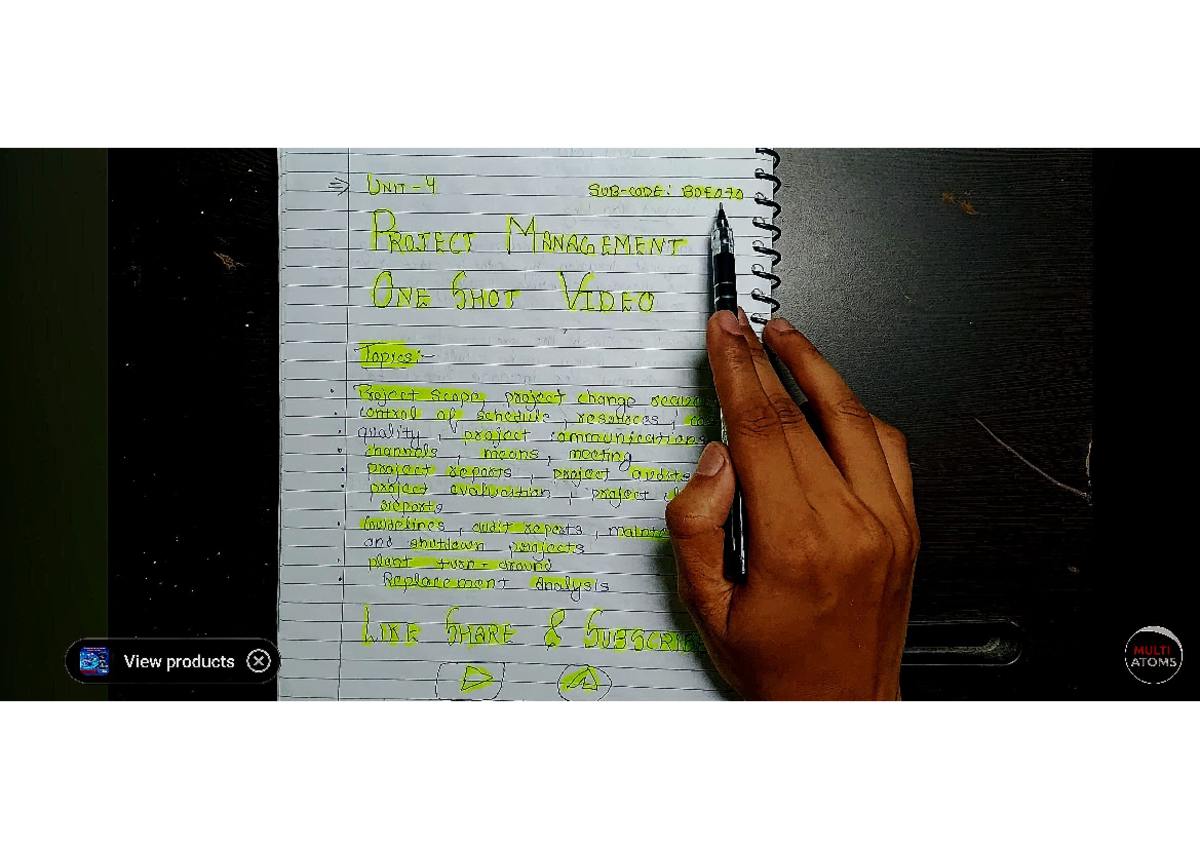 ⇒ UNIT - 4 SUB-CODE: BOE070
PROJECT MANAGEMENT
ONE SHOT VIDEO
Topics:-
• Project scope, project change
• control of schedule, resources,
• quality, project communications
• channels, means, meeting
• project reports, project audits
• project evaluation, project
reports
• Guidelines, audit reports,
and shutdown projects
• plant turn-around
• Replacement Analysis
LIKE SHARE & SUBSCRIBE
View products
MULTI
ATOMS